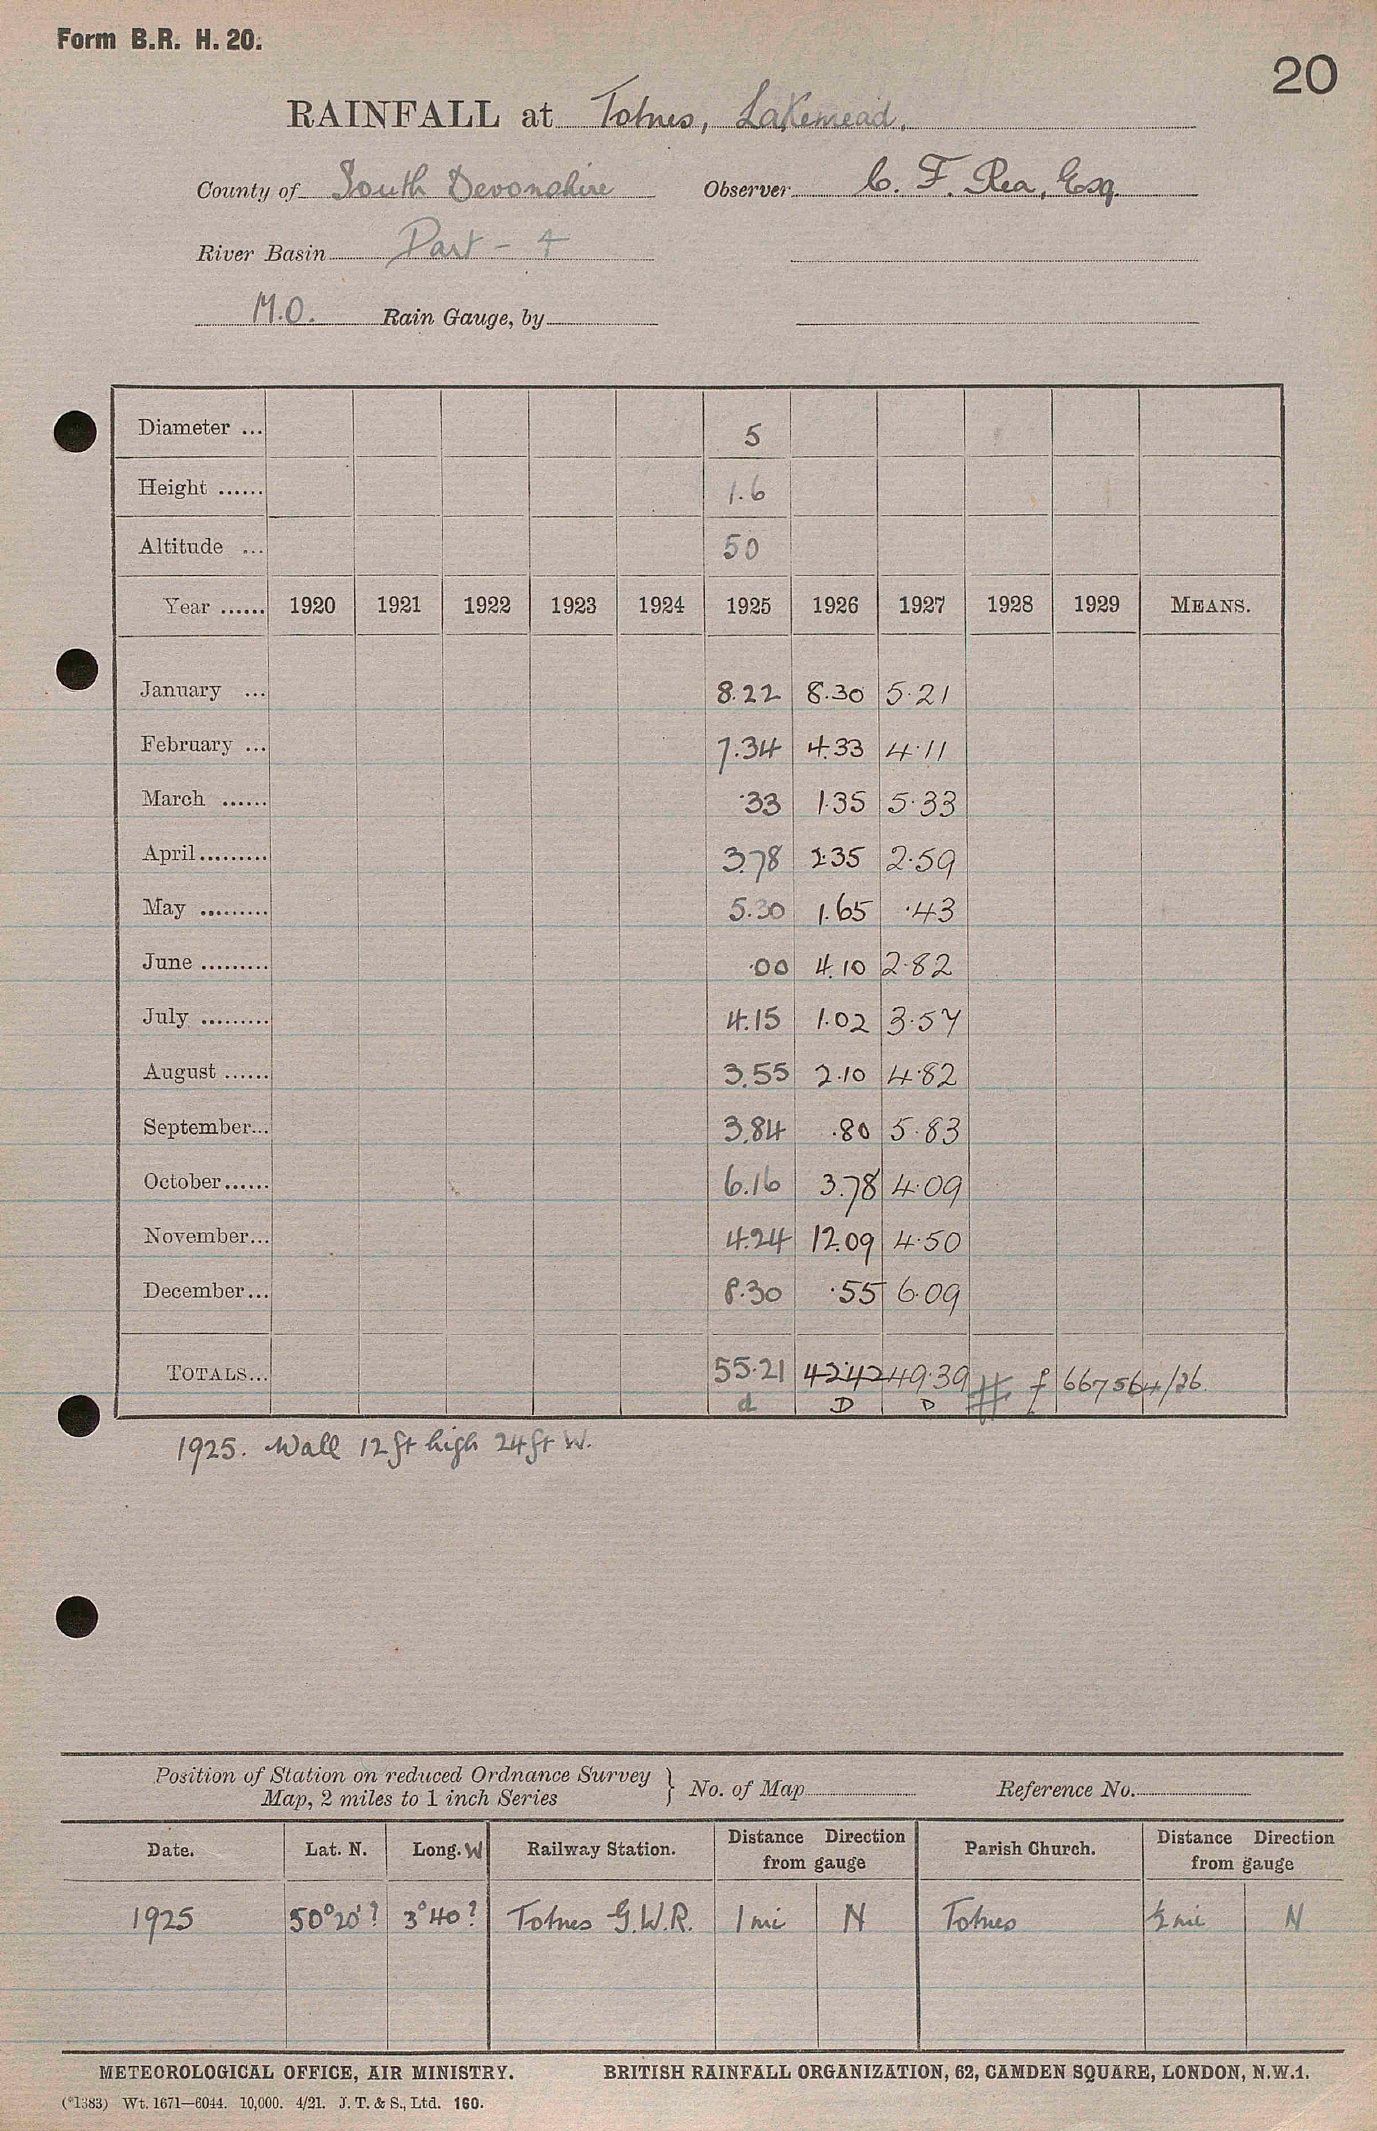 Form B.R. H. 20.
20
RAINFALL at Totnes, Lakemead.
County of South Devonshire Observer C. F. Rea, Esq.
River Basin Dart - 4
M.O. Rain Gauge, by
Diameter ... 5
Height ...... 1.6
Altitude ... 50
Year ...... 1920 1921 1922 1923 1924 1925 1926 1927 1928 1929 MEANS.
January ... 8.22 8.30 5.21
February ... 7.34 4.33 4.11
March ...... .33 1.35 5.33
April ......... 3.78 2.35 2.59
May ......... 5.30 1.65 .43
June ......... .00 4.10 2.82
July ......... 4.15 1.02 3.57
August ...... 3.55 2.10 4.82
September... 3.84 .80 5.83
October...... 6.16 3.78 4.09
November... 4.24 12.09 4.50
December... 8.30 .55 6.09
TOTALS... 55.21 42.42 49.39 # f 667564/26
d D D
1925. Wall 12 ft high 24 ft W.
Position of Station on reduced Ordnance Survey Map, 2 miles to 1 inch Series } No. of Map Reference No.
Date. Lat. N. Long. W Railway Station. Distance Direction from gauge Parish Church. Distance Direction from gauge
1925 50°20'? 3°40? Totnes G.W.R. 1 mi N Totnes ½ mi N
METEOROLOGICAL OFFICE, AIR MINISTRY. BRITISH RAINFALL ORGANIZATION, 62, CAMDEN SQUARE, LONDON, N.W.1.
(*1383) Wt. 1671—6044. 10,000. 4/21. J. T. & S., Ltd. 160.